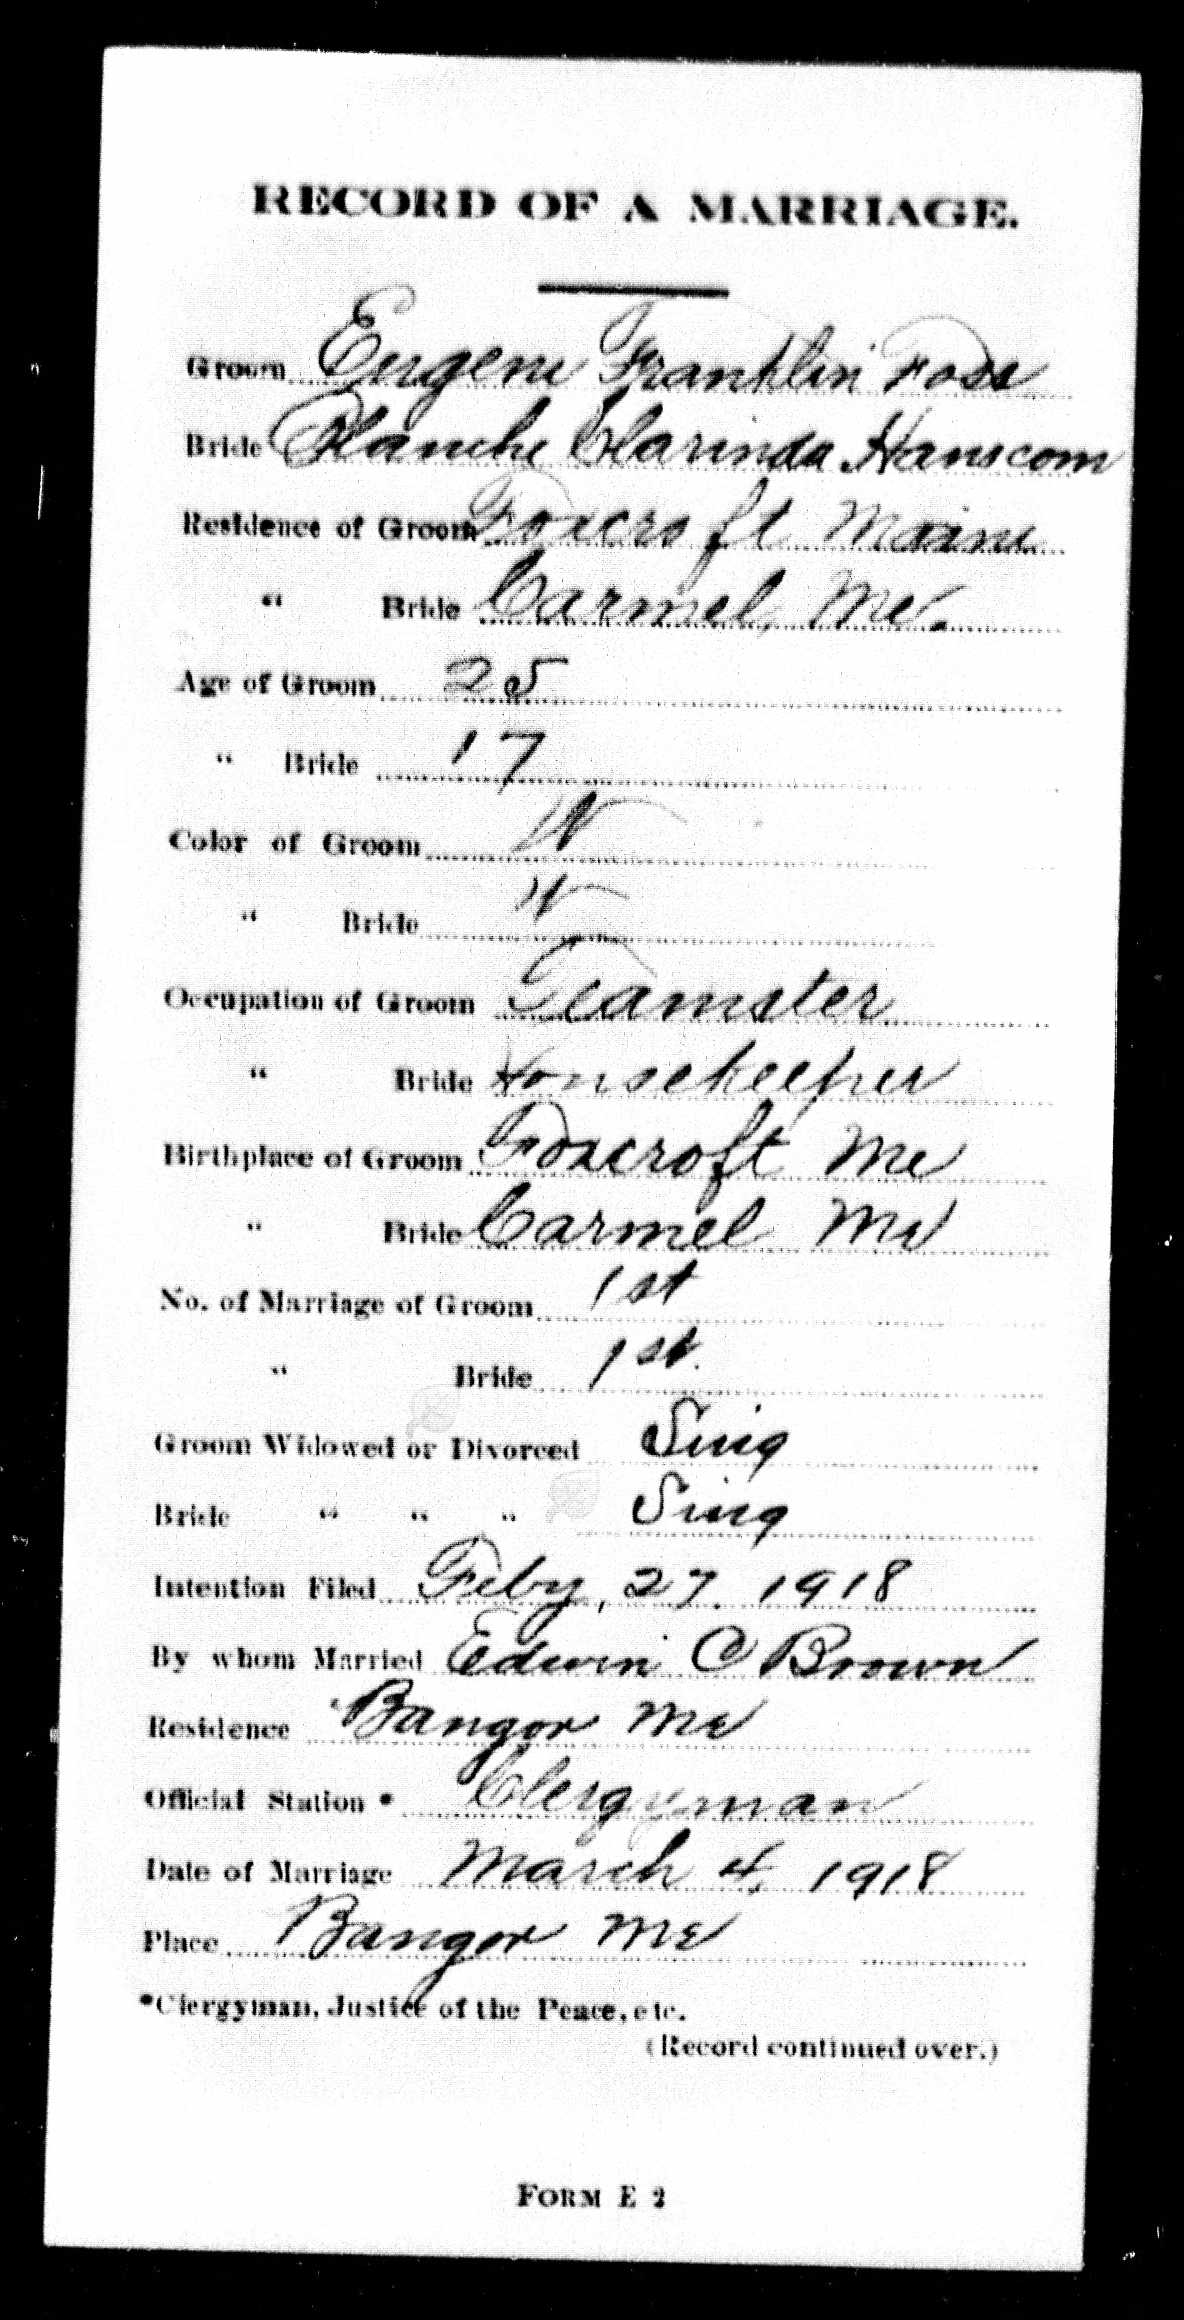 RECORD OF A MARRIAGE.
Groom Eugene Franklin Foss
Bride Blanche Clarinda Hanscom
Residence of Groom Foxcroft Maine
" Bride Carmel, Me.
Age of Groom 25
" Bride 17
Color of Groom W
" Bride W
Occupation of Groom Teamster
" Bride Housekeeper
Birthplace of Groom Foxcroft Me
" Bride Carmel Me
No. of Marriage of Groom 1st
" Bride 1st
Groom Widowed or Divorced Sing
Bride " " " Sing
Intention Filed Feby, 27, 1918
By whom Married Edwin C Brown
Residence Bangor Me
Official Station * Clergyman
Date of Marriage March 4, 1918
Place Bangor Me
*Clergyman, Justice of the Peace, etc.
(Record continued over.)
FORM E 2